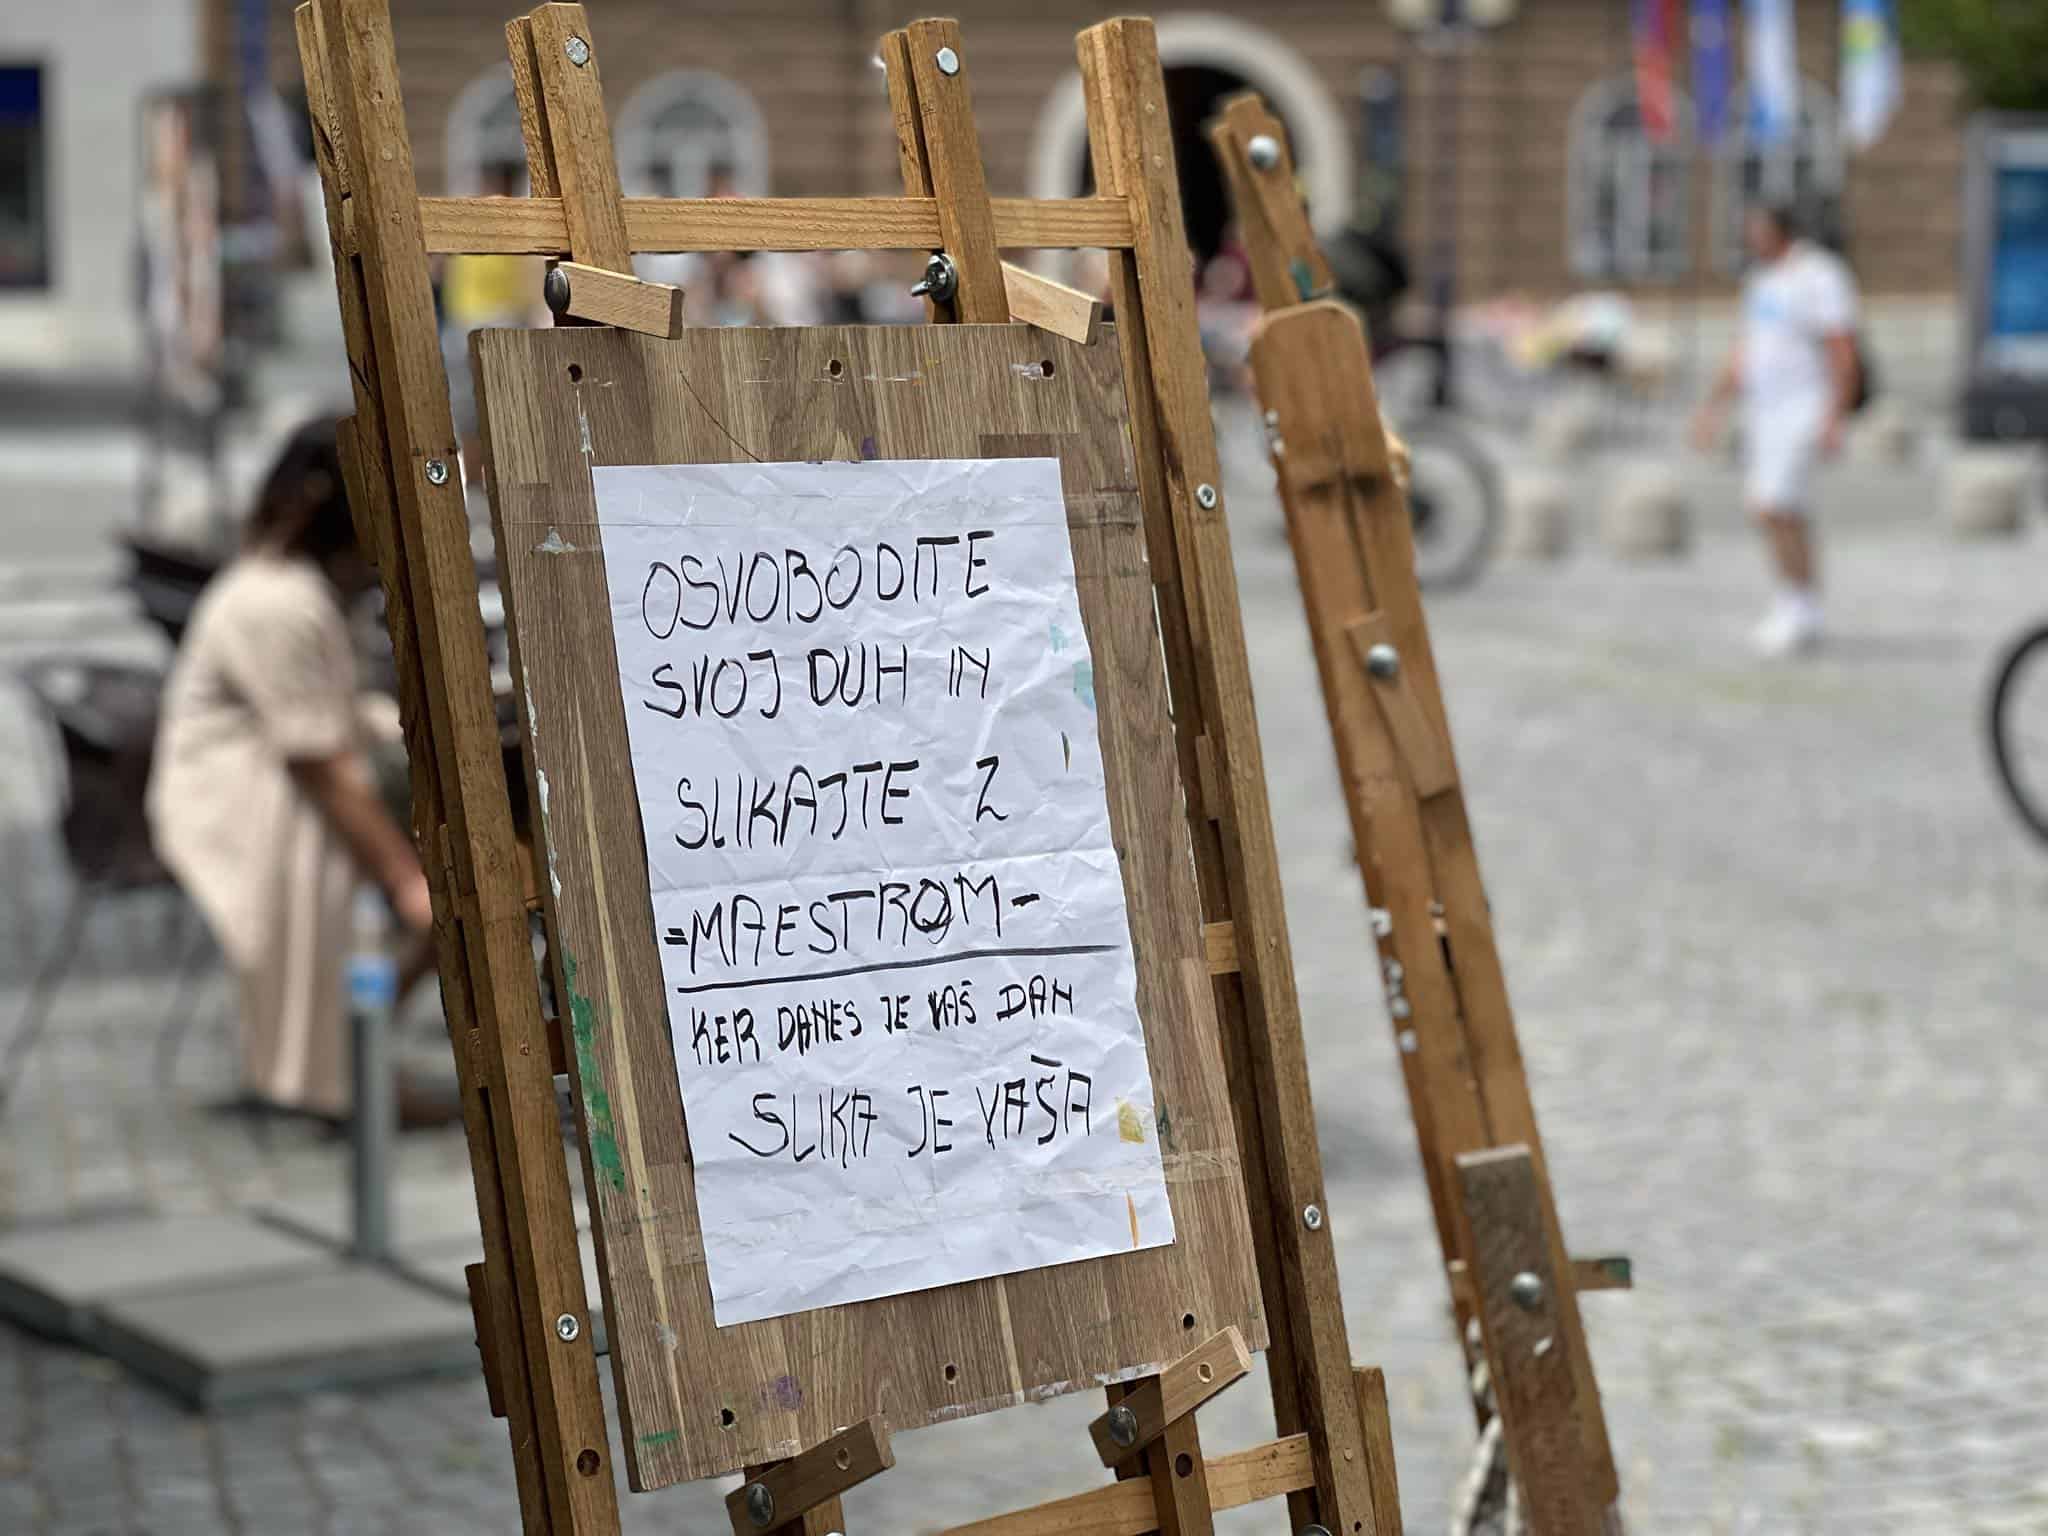 OSVOBODITE
SVOJ DUH IN
SLIKAJTE Z
=MAESTROM-
KER DANES JE VAŠ DAN
SLIKA JE VAŠA